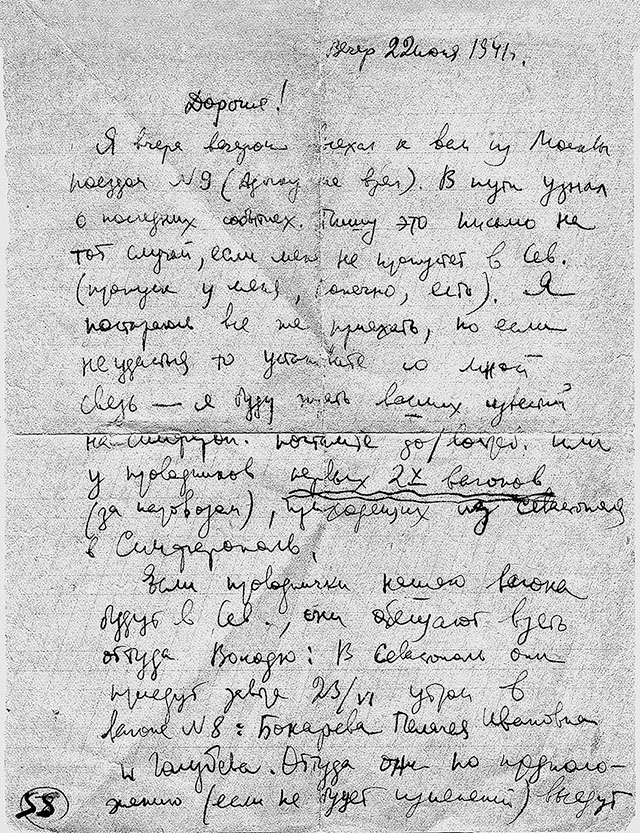 Вечер 22 июня 1941 г.
Дорогие!
Я вчера вечером выехал к вам из Москвы
поездом №9 (Аришку не взял). В пути узнал
о последних событиях. Пишу это письмо на
тот случай, если меня не пропустят в Сев.
(пропуск у меня, конечно, есть). Я
постараюсь все же приехать, но если
не удастся то установите со мной
связь — я буду ждать ваших известий
на Симфероп. почтамте до/востреб. или
у проводников первых 2х вагонов
(за паровозом), приходящих из Севастополя
в Симферополь.
Если проводнички нашего вагона
будут в Сев., они обещают взять
оттуда Володю: В Севастополь они
приедут завтра 23/VI утром в
вагоне №8: Бокарева Пелагея Ивановна
и Голубева. Оттуда они по предполо-
жению (если не будет изменений) выедут
58